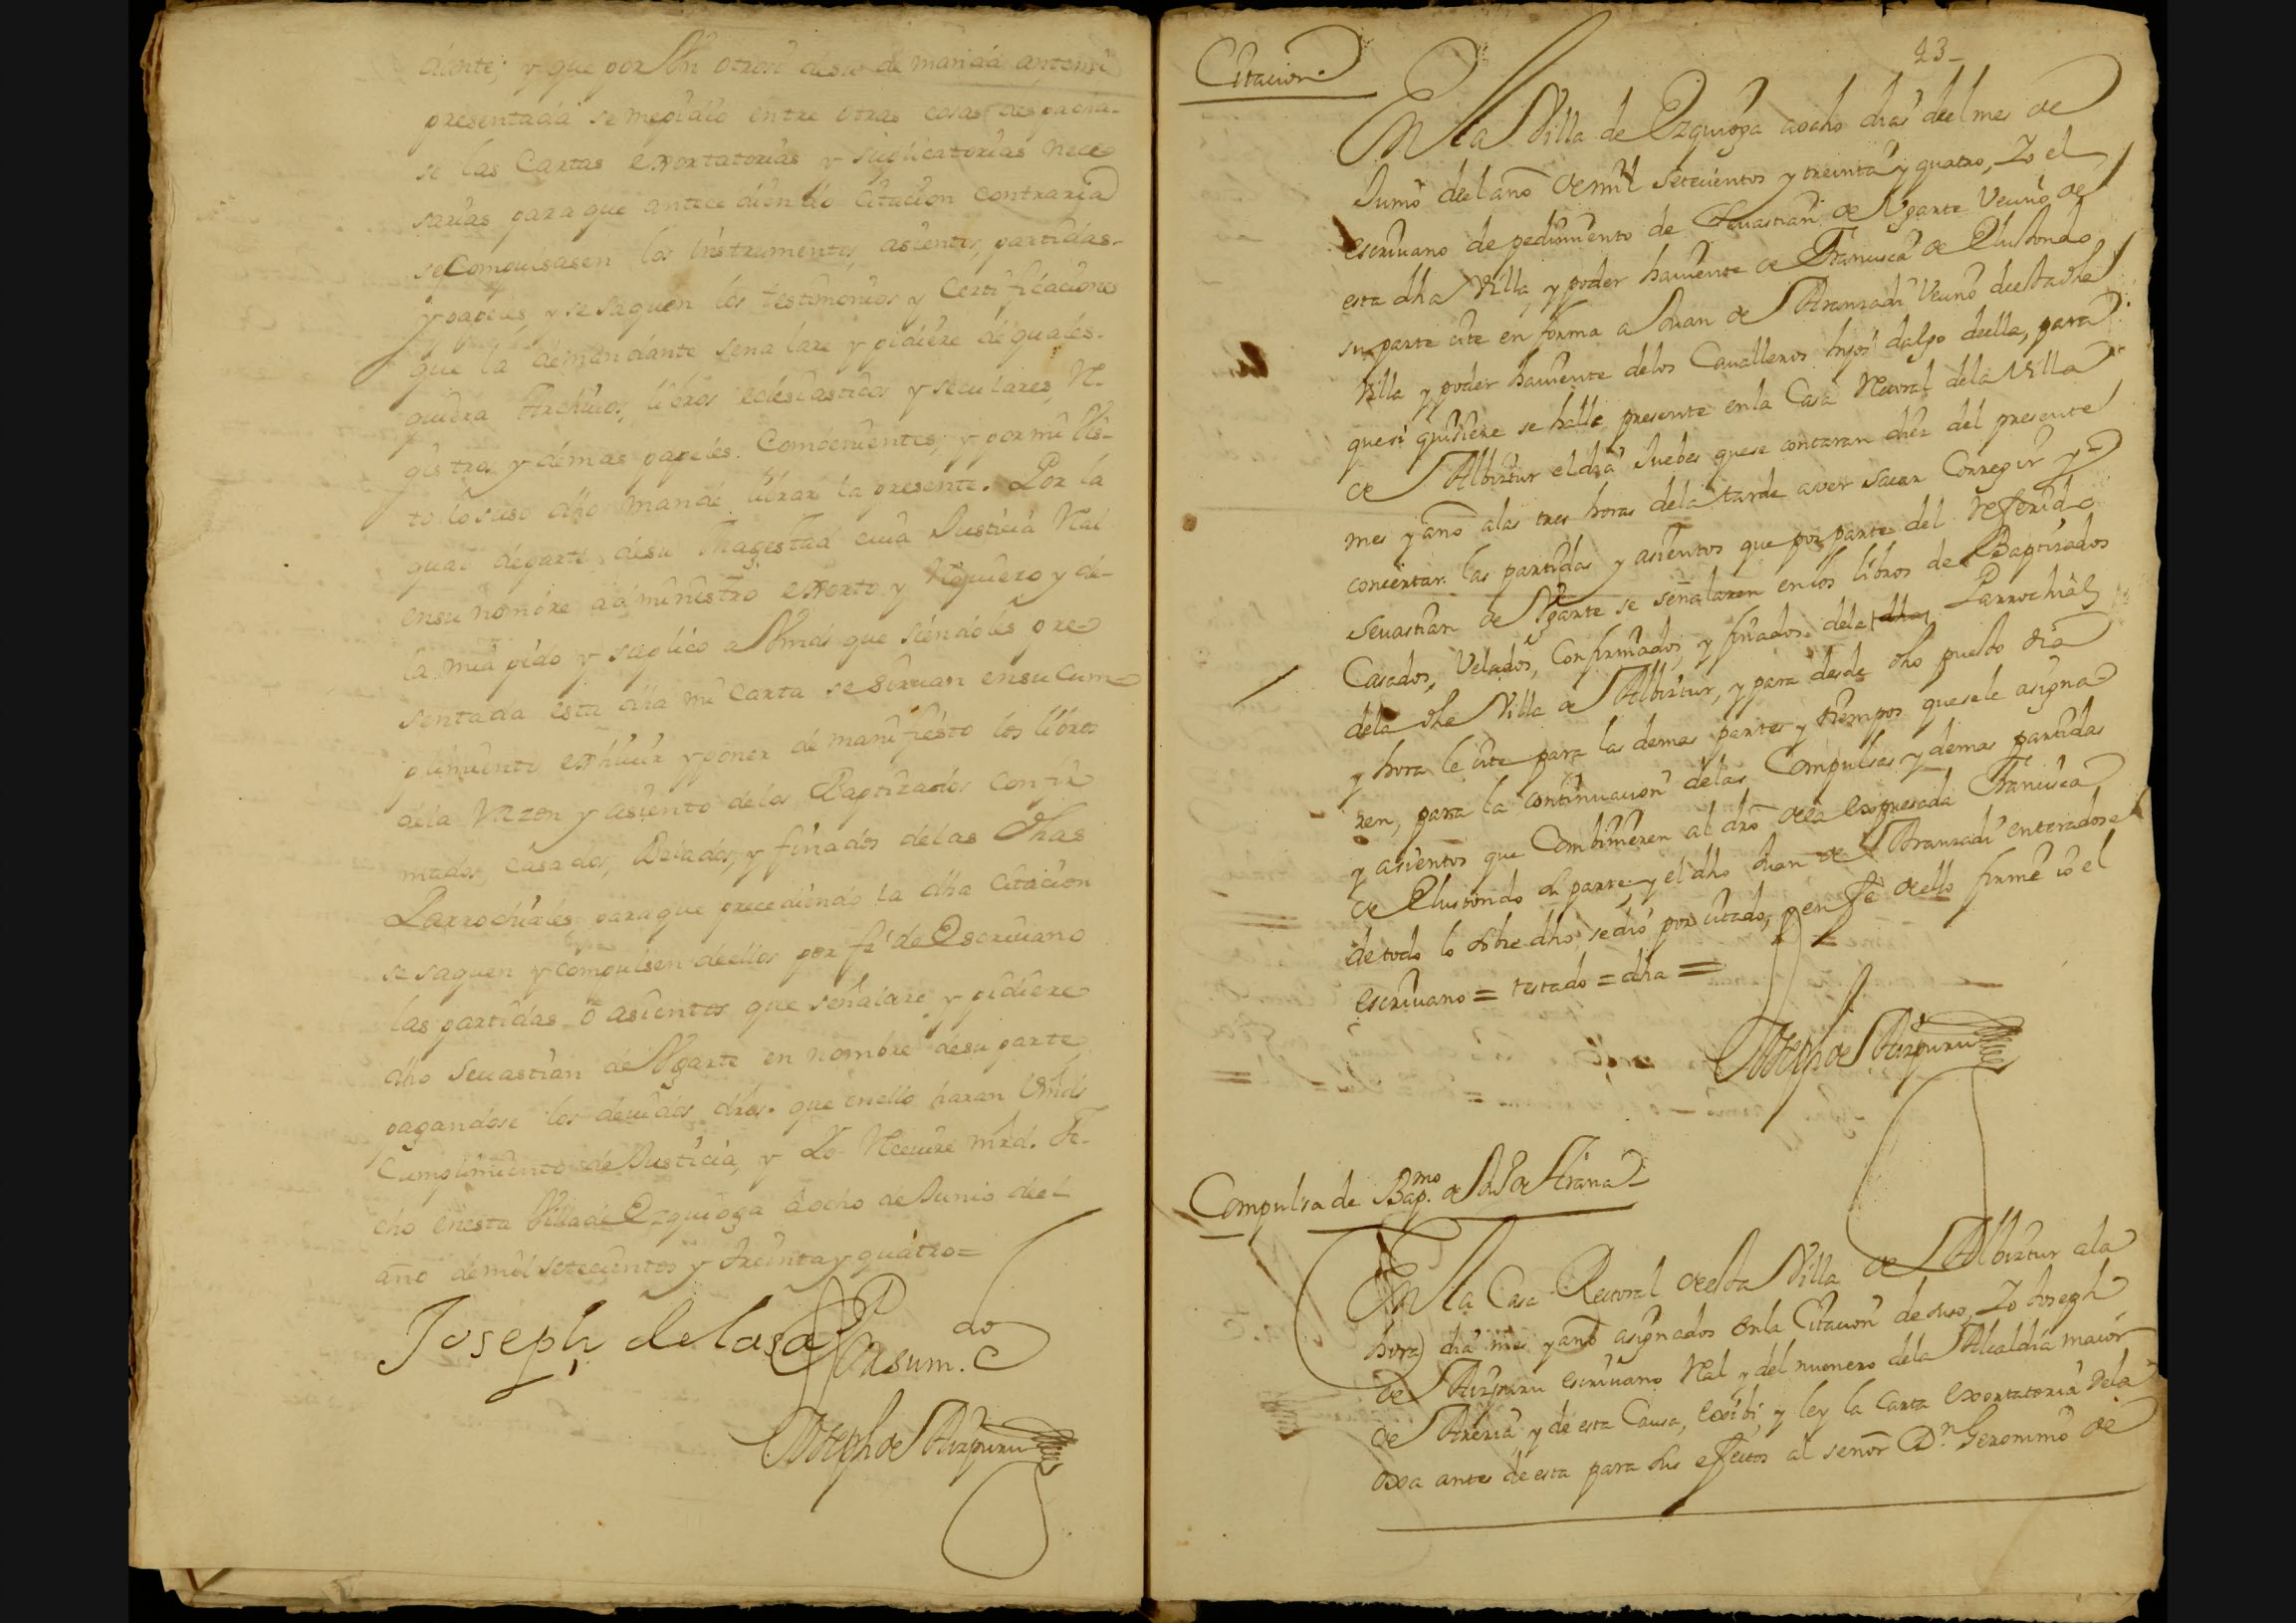 diente; y que por Un otrosi desu demanda antemi
presentada se me pidio entre otras cosas despacha-
se las Cartas exortatorias y suplicatorias nece
sarias para que antecediendo citacion contraria
se Compulsasen los instrumentos, asientos, partidas-
y papeles, y se saquen los testimonios y Certificaciones
que la demandante señalare y pidiere de quales-
quiera Archivos, libros eclesiasticos y seculares, Re-
gistros y demas papeles. Combenientes; y por mi Vis-
to lo suso dho mande librar la presente. Por la
qual de parte desu Magestad cuia Justicia Rl
en su nombre administro exorto y Requiero y de
la mia pido y suplico a Vmds que siendoles pre
sentada esta dha mi Carta se siruan en su cum-
plimiento exhiuir y poner de manifiesto los libros
dela Razon y asiento delos Baptizados Confir
mados, Casados, Velados, y finados delas dhas
Parrochiales, para que precediendo la dha Citacion
se saquen y compulsen de ellos por fe de Escriuano
las partidas o asientos que señalare y pidiere
dho Seuastian de Ugarte en nombre desu parte
pagandose los deuidos dros. que en ello haran Vmds
Cumplimiento de Justicia, y Yo Receuire mrd. Fe-
cho en esta Villa de Ezquioga a ocho de Junio del
año de mil setecientos y treinta y quatro=
Joseph de lasa
Por su m.do
Joseph de Aizpuru
23-
Citacion
En la Villa de Ezquioga a ocho dias del mes de
Junio del año de mil setecientos y treinta y quatro, Yo el
escriuano de pedimiento de Seuastian de Ugarte Vecino de
esta dha Villa, y poder hauiente de Francisca de Elustondo
su parte cite en forma a Juan de Aranzadi Vecino de esta dha
Villa y poder hauiente delos Caualleros hijos dalgo de ella, para
que si quisiere se halle presente en la Casa Rectoral dela Villa
de Albiztur el dia Juebes que se contaran diez del presente
mes y año alas tres horas dela tarde a ver sacar Corregir y
concertar las partidas y asientos que por parte del referido
Seuastian de Ugarte se señalaren en los libros de Baptizados
Casados, Velados, Confirmados, y finados dela dha Parrochial
dela dha Villa de Albiztur, y para desde dho puesto dia
y hora le cite para las demas partes y tiempos que se le asigna
ren, para la continuacion delas Compulsas y demas partidas
y asientos que Combinieren al dro dela expresada Francisca
de Elustondo su parte, y el dho Juan de Aranzadi enterado se
de todo lo sobre dho, se dio por citado, y en fe de ello firme io el
escriuano = testado = dha =
Joseph de Aizpuru
Compulsa de Bap.mo de de Arana
En la Casa Rectoral de esta Villa de Albiztur ala
hora dia mes y año asignados en la Citacion de suso, Yo Joseph
de Aizpuru escriuano Rl y del numero dela Alcaldia maior
de Areria y de esta Causa, exibi, y ley la Carta exortatoria dela
oxa antes de esta para sus efectos al señor Dn Geronimo de